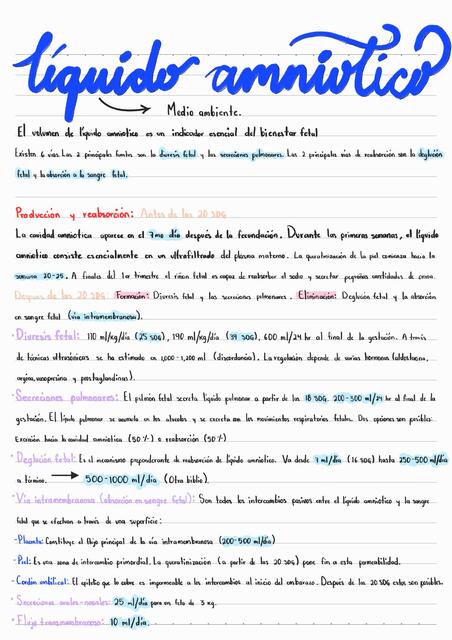 líquido amniótico
Medio ambiente.
El volumen de líquido amniótico es un indicador esencial del bienestar fetal
Existen 6 vías. Las 2 principales fuentes son la diuresis fetal y las secreciones pulmonares. Las 2 principales vías de reabsorción son la deglución
fetal y la absorción a la sangre fetal.
Producción y reabsorción: Antes de las 20 SDG
La cavidad amniótica aparece en el 7mo día después de la fecundación. Durante las primeras semanas, el líquido
amniótico consiste esencialmente en un ultrafiltrado del plasma materno. La queratinización de la piel comienza hacia la
semana 20-25. A finales del 1er trimestre el riñon fetal es capaz de reabsorber el sodio y secretar pequeñas cantidades de orina.
Después de las 20 SDG: Formación: Diuresis fetal y las secreciones pulmonares. Eliminación: Deglución fetal y la absorción
en sangre fetal (vía intramembranosa).
· Diuresis fetal: 110 ml/kg/día (25 SDG), 190 ml/kg/día (39 SDG), 600 ml/24 hr al final de la gestación. A través
de técnicas ultrasónicas se ha estimado en 1,000-1,200 ml (discordancia). La regulación depende de varias hormonas (aldosterona,
arginina, vasopresina y prostaglandinas).
· Secreciones pulmonares: El pulmón fetal secreta líquido pulmonar a partir de las 18 SDG. 200-300 ml/24 hr al final de la
gestación. El líquido pulmonar se acumula en los alveolos y se excreta en los movimientos respiratorios fetales. Dos opciones son posibles:
Excreción hacia la cavidad amniótica (50%) o reabsorción (50%)
· Deglución fetal: Es el mecanismo preponderante de reabsorción de líquido amniótico. Va desde 7 ml/día (16 SDG) hasta 250-500 ml/día
a término. → 500-1000 ml/día (Otra biblio).
· Vía intramembranosa (absorción en sangre fetal): Son todos los intercambios pasivos entre el líquido amniótico y la sangre
fetal que se efectúan a través de una superficie:
- Placenta: Constituye el flujo principal de la vía intramembranosa (200-500 ml/día)
- Piel: Es una zona de intercambio primordial. La queratinización (a partir de las 20 SDG) pone fin a esta permeabilidad.
- Cordón umbilical: El epitelio que lo cubre es impermeable a los intercambios al inicio del embarazo. Después de las 20 SDG estos son posibles.
· Secreciones orales-nasales: 25 ml/día para un feto de 3 kg.
· Flujo transmembranoso: 10 ml/día.